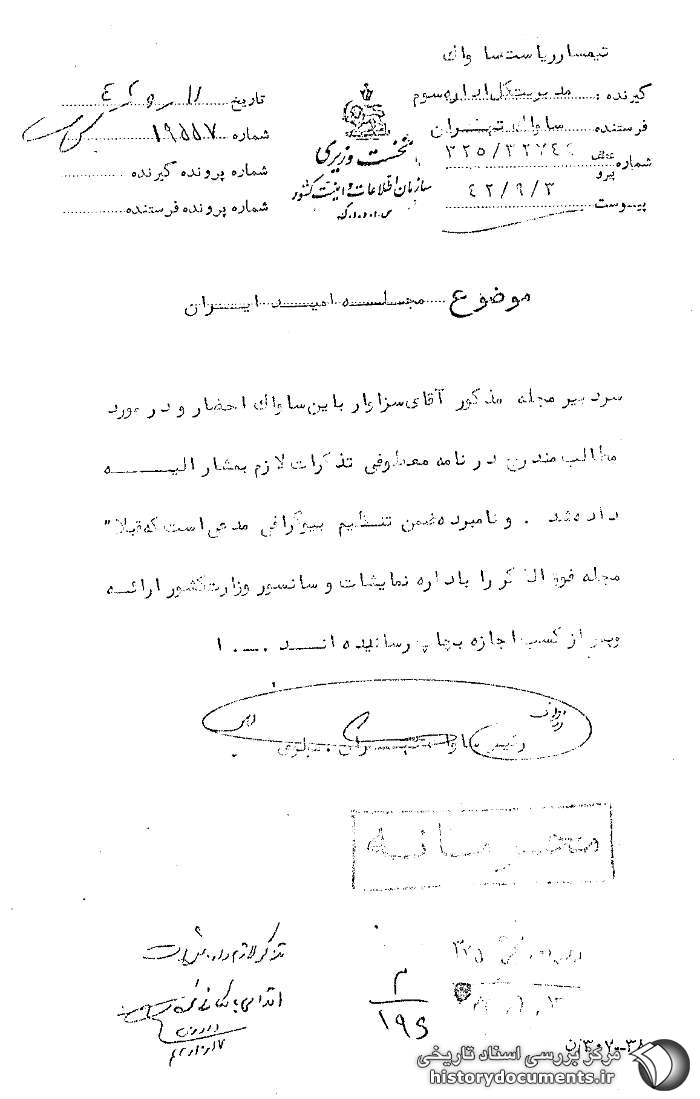 تیمسار ریاست ساواك
گیرنده : مدیریت کل اداره سوم
فرستنده ساواك تهران
شماره عطف پیرو ۳۲۵/۳۲۷۴۴
پیوست ۴۲/۹/۳
نخست وزیری
سازمان اطلاعات و امنیت کشور
س.ا.و.ا.ك
تاریخ
شماره ۱۹۵۵۷
شماره پرونده گیرنده
شماره پرونده فرستنده
موضوع مجله امید ایران
سردبیر مجله مذکور آقای سزاوار باین ساواك احضار و در مورد
مطالب مندرج در نامه معطوفی تذکرات لازم بمشار الیه
داده شد . و نامبرده ضمن تنظیم بیوگرافی مدعی است که قبلا"
مجله فوق الذکر را باداره نمایشات و سانسور وزارت کشور ارائه
وپس از کسب اجازه بچاپ رسانیده اند . ا
رئیس ساواك تهران . مولوی
محرمانه
تذکر لازم داده شده است
۳۲۵
م
۱۹۶
۳۰۷۰-۳۸
مرکز بررسی اسناد تاریخی
historydocuments.ir